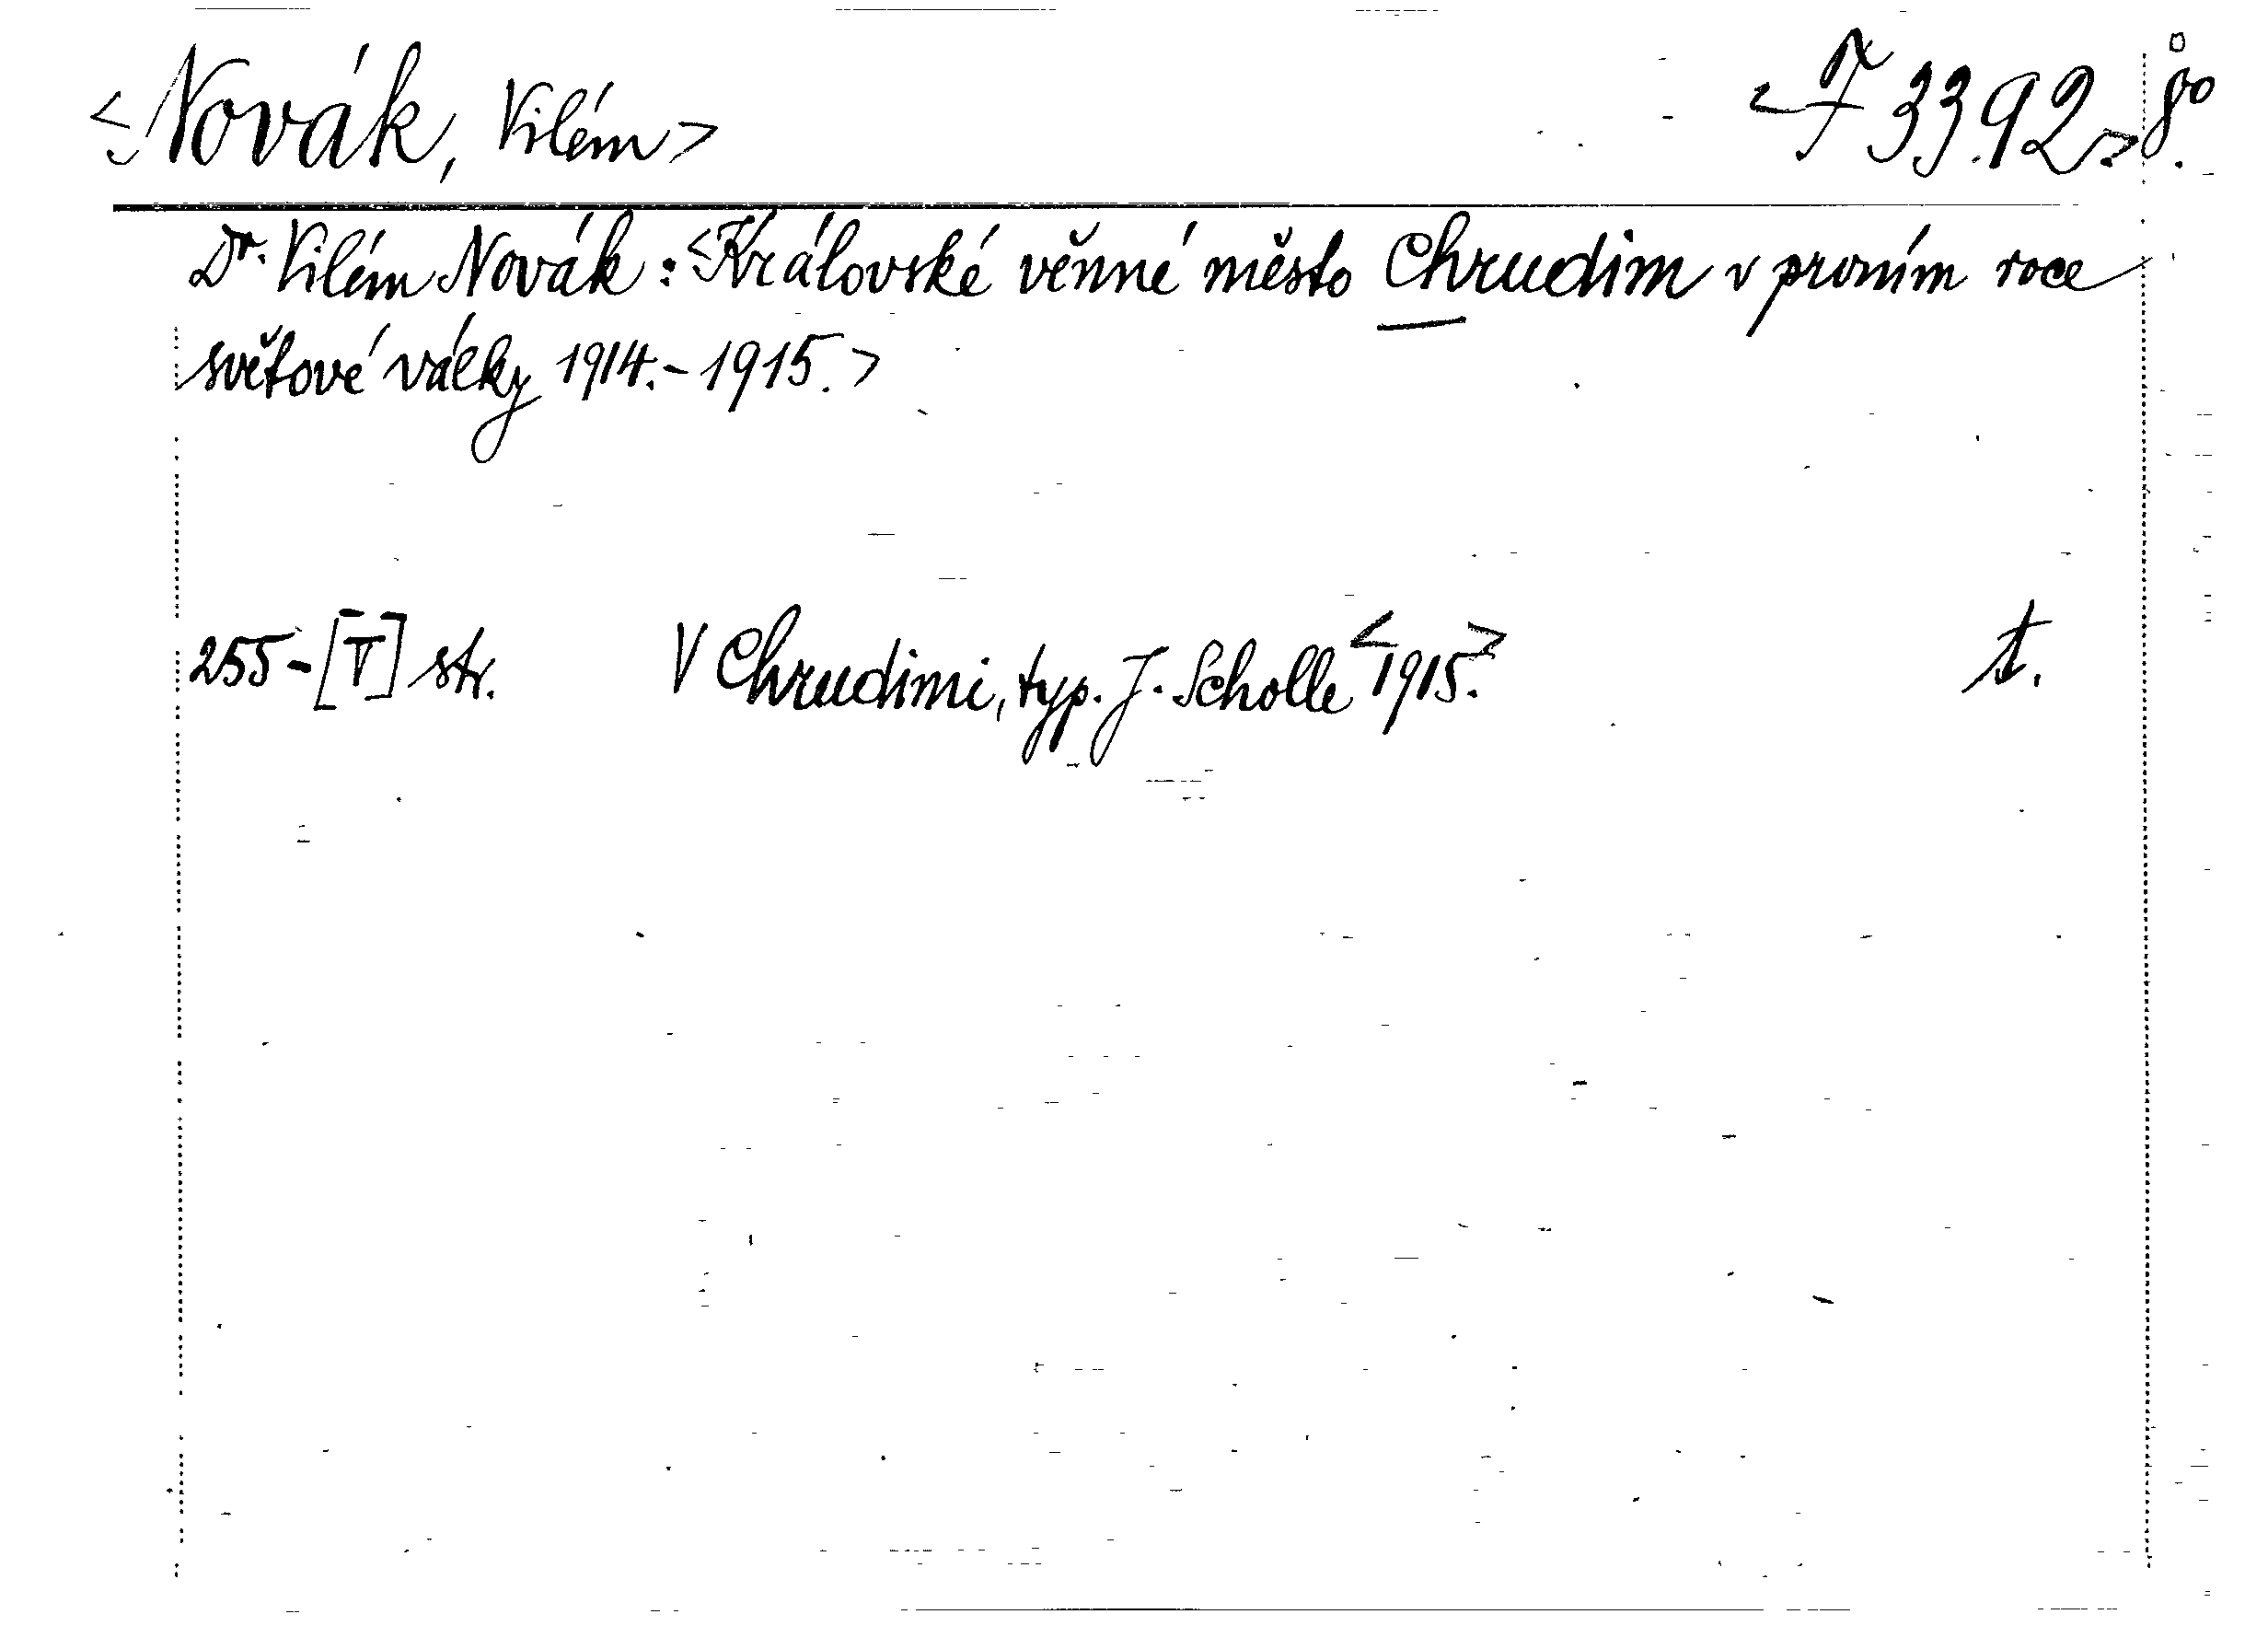 <Novák, Vilém> <F 33.92> 8º.
Dr. Vilém Novák: <Královské věnné město Chrudim v prvním roce
světové války 1914.-1915.>
255-[I] str. V Chrudimi, typ. J. Scholle <1915.> t.